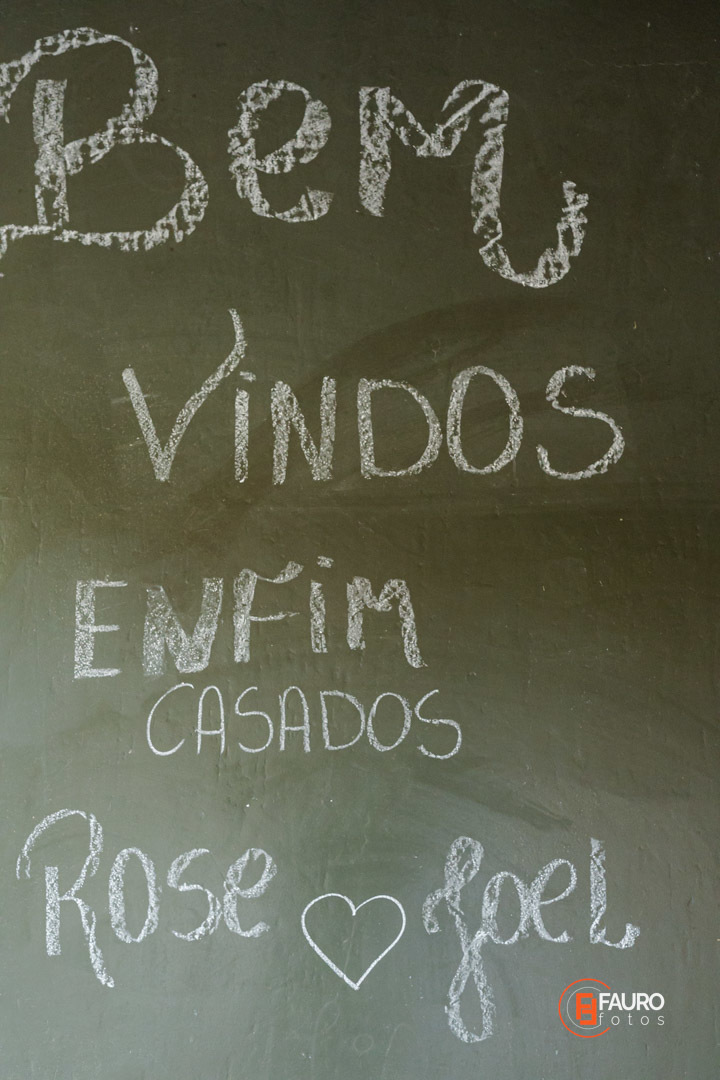 Bem
ViNDOS
ENFiM
CASADOS
Rose ♡ Joel
FAURO
fotos